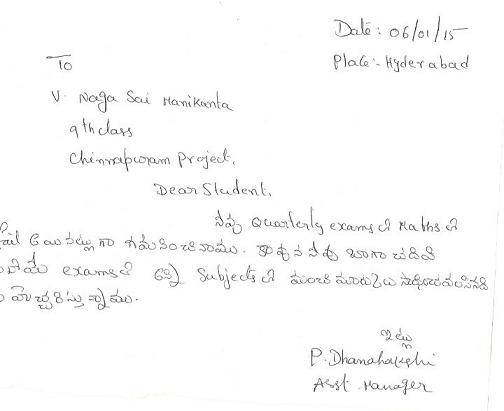 Date: 06/01/15
Place:- Hyderabad
To
V. Naga Sai Manikanta
9th class
Chinnapuram Project,
Dear Student,
నీవు Quarterly exams లో Maths లో
గా గమనించినాము. కావున నీవు బాగా చదివి
exams లో అన్ని Subjects లో మంచి మార్కులు
హెచ్చరిస్తున్నాము.
ఇట్లు
P. Dhanalakshi
Asst Manager